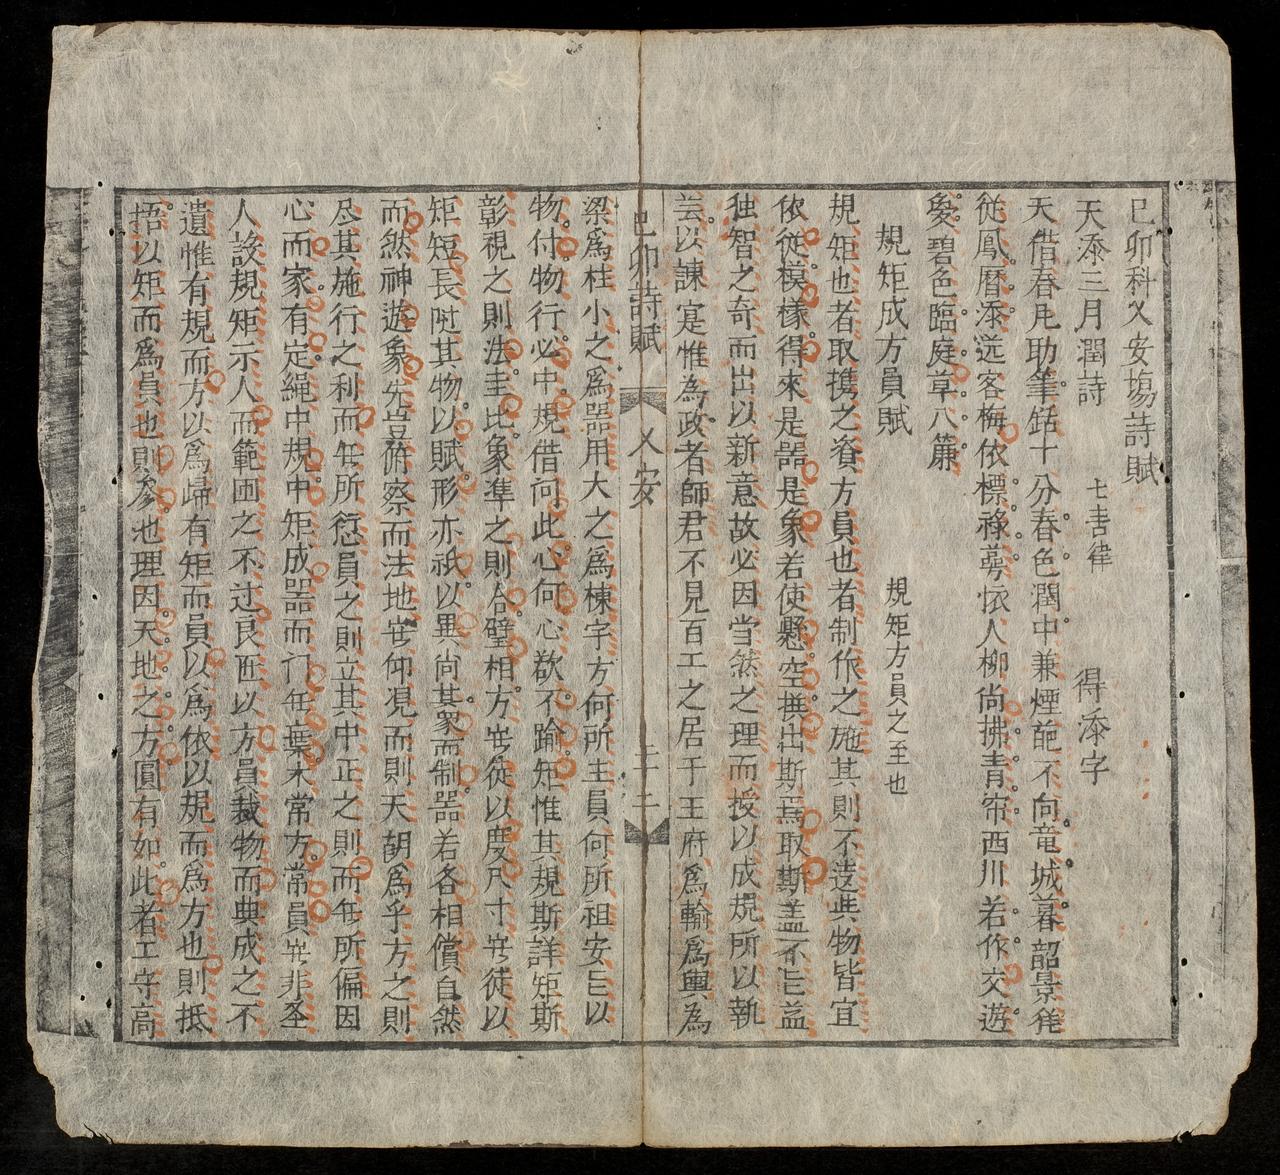 己卯科乂安場詩賦
天添三月潤詩 七言律 得添字
天借春光助筆銛十分春色潤中兼煙花不向竜城暮韶景徔
從鳳暦添遠客梅依標祿萼懷人柳尚拂青帘西川若作交遊
夐碧色臨庭草八簾
規矩成方員賦 規矩方員之至也
規矩也者取攜之資方員也者制作之施其則不遠與物皆宜
依從模樣得來是噐是象若使懸空撰出斯焉取斯盖不㠯益
独智之奇而出以新意故必因当然之理而授以成規所以執
芸以諫寔惟為政者師君不見百工之居于王府爲輸爲輿為
梁爲柱小之爲噐用大之爲棟宇方何所主員何所祖安㠯以
物付物行必中規借问此心何心欲不踰矩惟其規斯詳矩斯
彰視之則法圭比象準之則合璧相方㞷徒以度尺寸㞷徒以
矩短長附其物以賦形亦祇以異尚其象而制噐若各相償自然
而然神遊象先豈俯察而法地㞷仰覌而則天朝爲乎方之則
尽其施行之利而年所愆員之則立其中正之則而年所偏因
心而家有定繩中規中矩成噐而门年棄木常方常員㞷非圣
人設規矩示人而範囬之不过良匠以方員裁物而典成之不
遺惟有規而方以爲歸有矩而員以爲依以規而爲方也則抵
捂以矩而爲員也則參池理因天地之方圓有如此者工守高
己卯詩賦 乂安 二十二